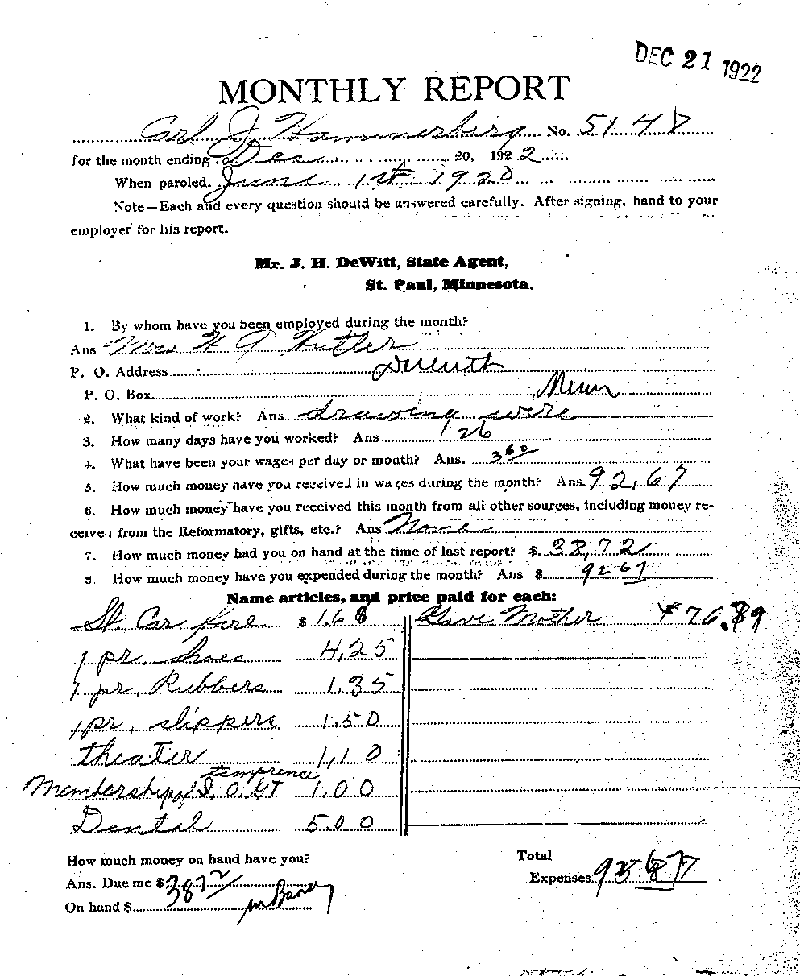 DEC 21 1922
MONTHLY REPORT
Carl J. Hammerberg No. 5148
for the month ending Dec 20, 1922
When paroled June 1st 1920
Note—Each and every question should be answered carefully. After signing, hand to your
employer for his report.
Mr. J. H. DeWitt, State Agent,
St. Paul, Minnesota.
1. By whom have you been employed during the month?
Ans
P. O. Address Duluth
P. O. Box Minn
2. What kind of work? Ans. drawing wire
3. How many days have you worked? Ans 26
4. What have been your wages per day or month? Ans.
5. How much money have you received in wages during the month? Ans 92,67
6. How much money have you received this month from all other sources, including money re-
ceived from the Reformatory, gifts, etc.? Ans None
7. How much money had you on hand at the time of last report? $ 38,72
8. How much money have you expended during the month? Ans $ 9267
Name articles, and price paid for each:
St. Car fire $ 1.68 Give Mother $ 76.
1 pr. shoes 4,25
1 pr. Rubbers 1.35
1 pr. slippers 1.50
theater 1,10
temprence
Membership of I. O. GT 1.00
Dental 5.00
How much money on hand have you? Total
Ans. Due me $ 3872 Expenses
On hand $